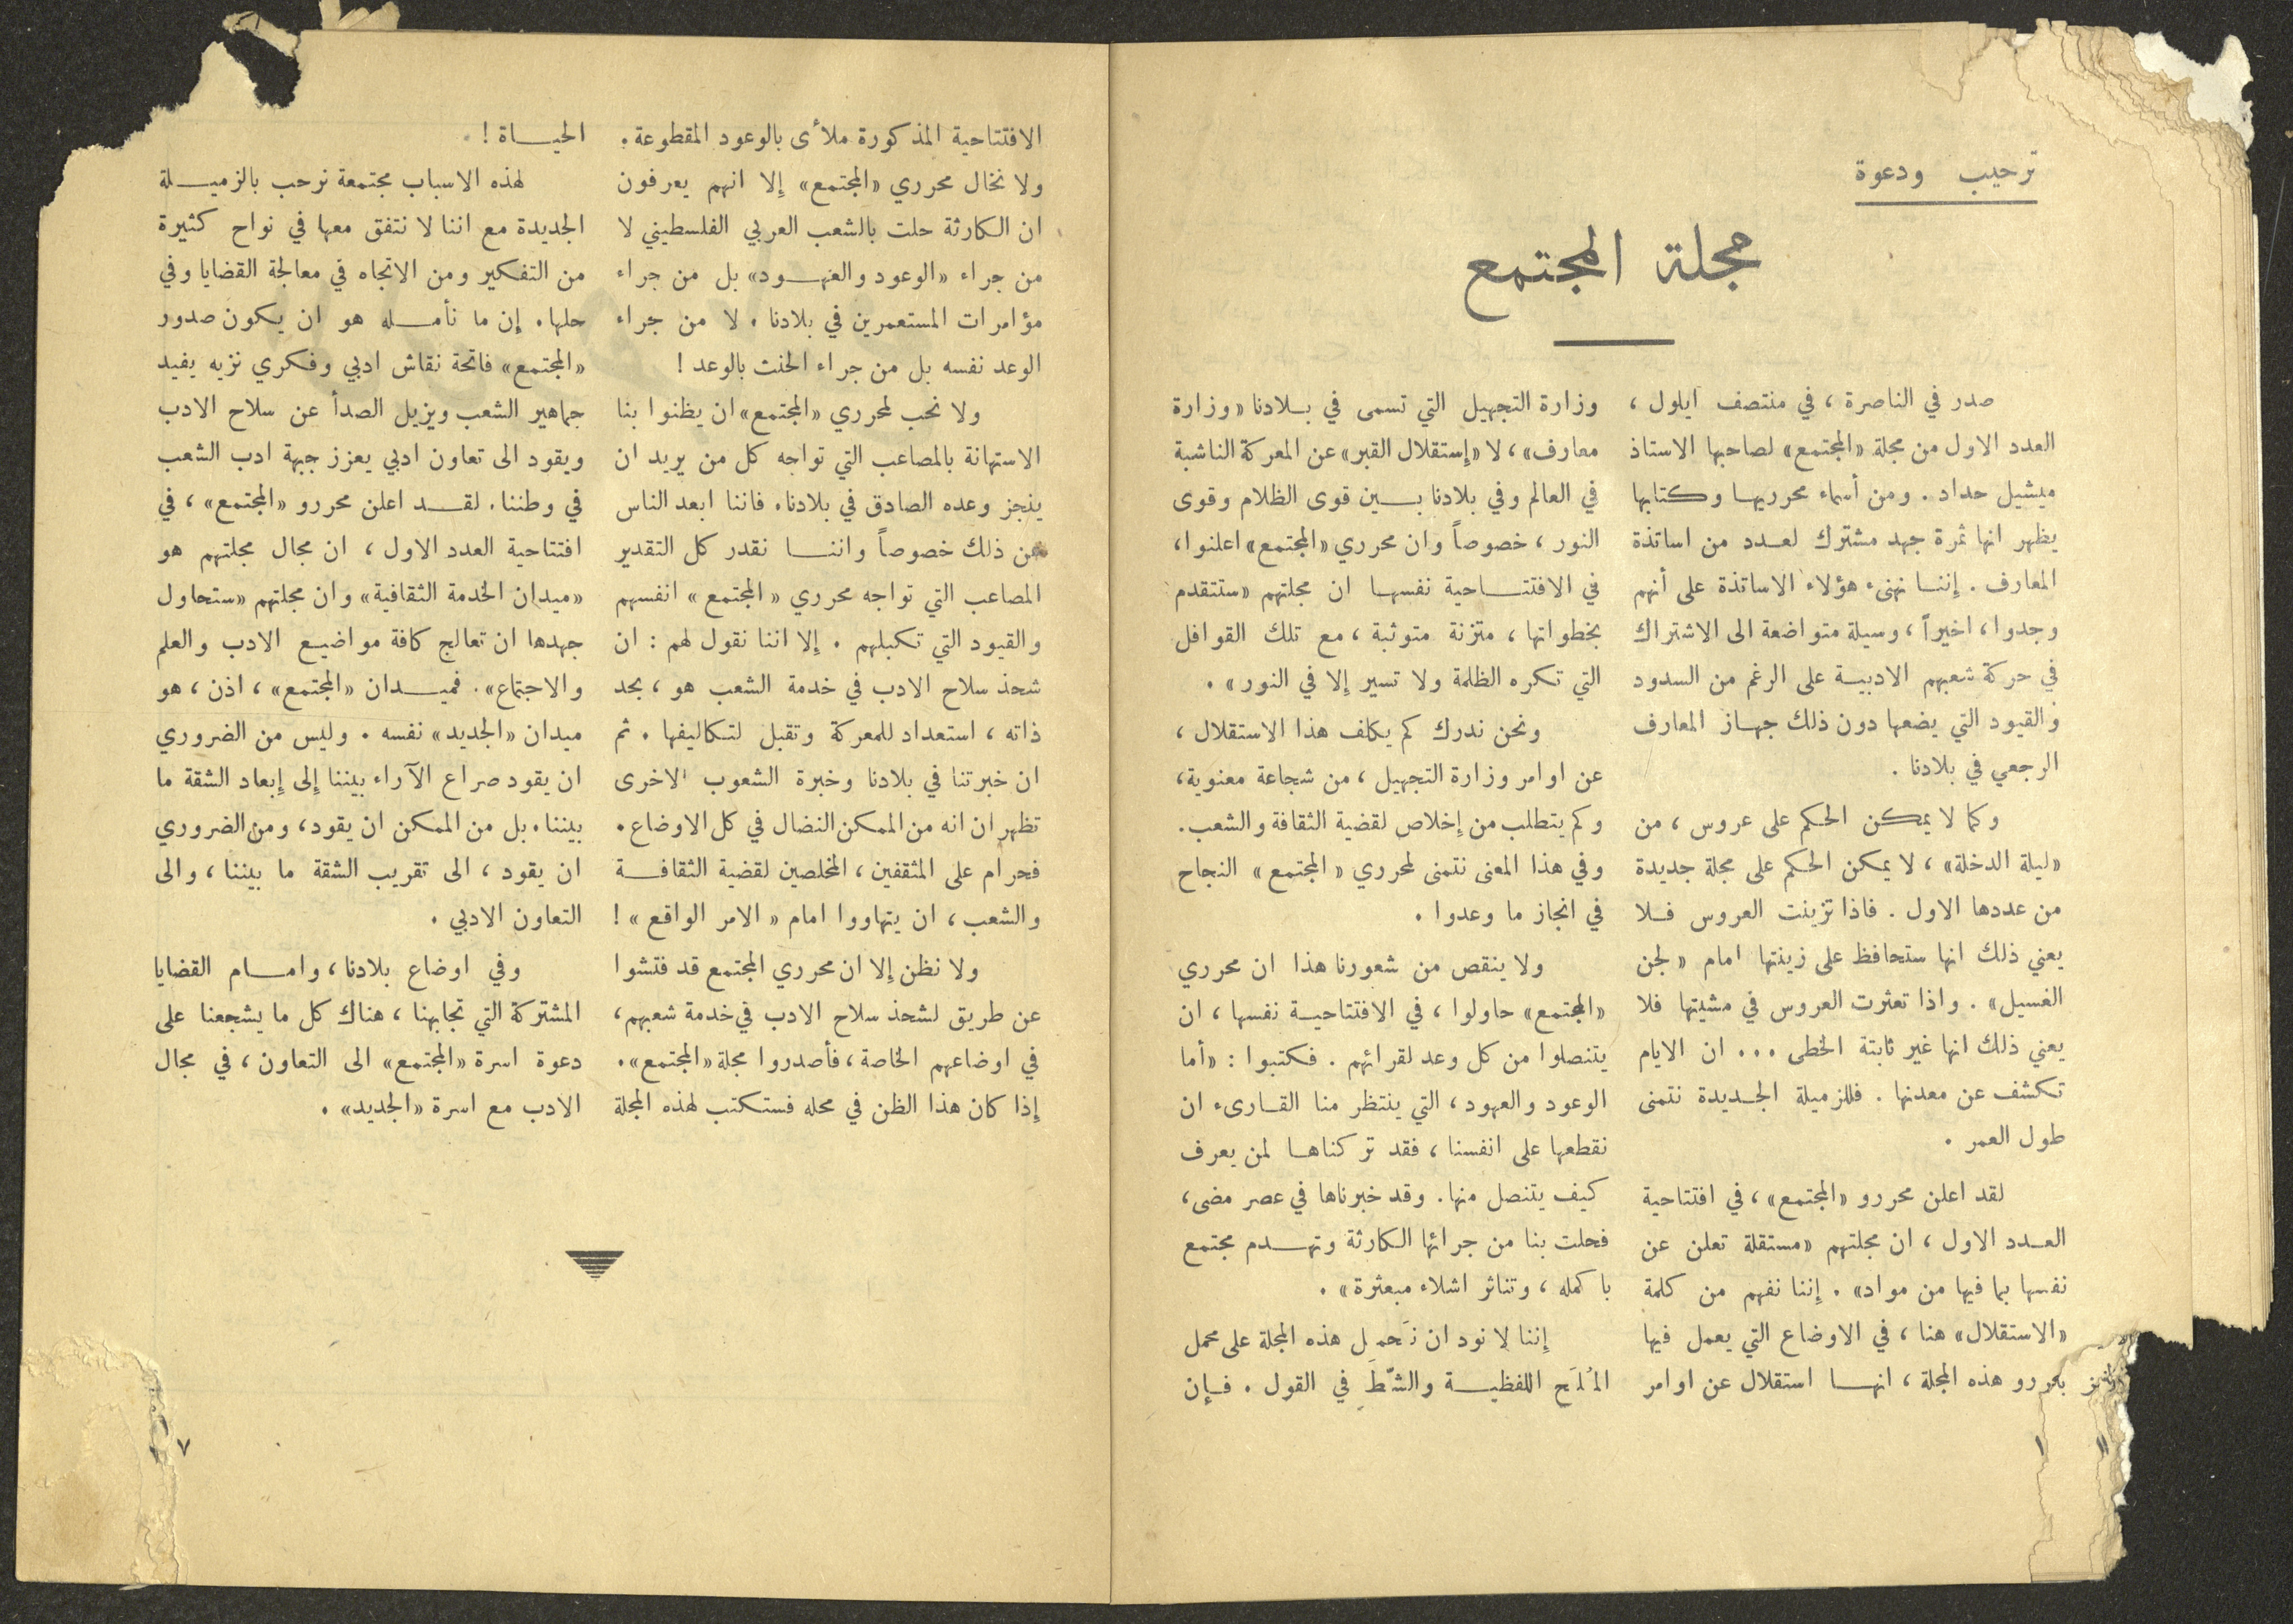 ترحيب ودعوة
مجلة المجتمع
صدر في الناصرة ، في منتصف ايلول ،
العدد الاول من مجلة «المجتمع» لصاحبها الاستاذ
ميشيل حداد . ومن أسماء محرريها وكتابها
يظهر انها ثمرة جهد مشترك لعدد من اساتذة
المعارف . إننا نهنىء هؤلاء الاساتذة على أنهم
وجدوا، اخيراً، وسيلة متواضعة الى الاشتراك
في حركة شعبهم الادبية على الرغم من السدود
والقيود التي يضعها دون ذلك جهاز المعارف
الرجعي في بلادنا .
وكما لا يمكن الحكم على عروس ، من
«ليلة الدخلة» ، لا يمكن الحكم على مجلة جديدة
من عددها الاول . فاذا تزينت العروس فلا
يعني ذلك انها ستحافظ على زينتها امام «لجن
الغسيل» . واذا تعثرت العروس في مشيتها فلا
يعني ذلك انها غير ثابتة الخطى ... ان الايام
تكشف عن معدنها . فللزميلة الجديدة نتمنى
طول العمر .
لقد اعلن محررو «المجتمع» ، في افتتاحية
العدد الاول ، ان مجلتهم «مستقلة تعلن عن
نفسها بما فيها من مواد» . إننا نفهم من كلمة
«الاستقلال» هنا ، في الاوضاع التي يعمل فيها
محررو هذه المجلة ، انها استقلال عن اوامر
وزارة التجهيل التي تسمى في بلادنا «وزارة
معارف» ، لا «إستقلال القبر» عن المعركة الناشبة
في العالم وفي بلادنا بين قوى الظلام وقوى
النور ، خصوصاً وان محرري «المجتمع» اعلنوا،
في الافتتاحية نفسها ان مجلتهم «ستتقدم
بخطواتها ، متزنة متوثبة ، مع تلك القوافل
التي تكره الظلمة ولا تسير إلا في النور» .
ونحن ندرك كم يكلف هذا الاستقلال ،
عن اوامر وزارة التجهيل ، من شجاعة معنوية،
وكم يتطلب من إخلاص لقضية الثقافة والشعب.
وفي هذا المعنى نتمنى لمحرري «المجتمع» النجاح
في انجاز ما وعدوا .
ولا ينقص من شعورنا هذا ان محرري
«المجتمع» حاولوا ، في الافتتاحية نفسها ، ان
يتنصلوا من كل وعد لقرائهم . فكتبوا : «أما
الوعود والعهود، التي ينتظر منا القارىء ان
نقطعها على انفسنا ، فقد تركناها لمن يعرف
كيف يتنصل منها. وقد خبرناها في عصر مضى،
فحلت بنا من جرائها الكارثة وتهدم مجتمع
باكمله ، وتناثر اشلاء مبعثرة» .
إننا لا نود ان نَحمل هذه المجلة على محمل
المُلَح اللفظية والشَّطَط في القول . فإن
١
الافتتاحية المذكورة ملأى بالوعود المقطوعة.
ولا نخال محرري «المجتمع» إلا انهم يعرفون
ان الكارثة حلت بالشعب العربي الفلسطيني لا
من جراء «الوعود والعهود» بل من جراء
مؤامرات المستعمرين في بلادنا . لا من جراء
الوعد نفسه بل من جراء الحنث بالوعد !
ولا نحب لمحرري «المجتمع» ان يظنوا بنا
الاستهانة بالمصاعب التي تواجه كل من يريد ان
ينجز وعده الصادق في بلادنا. فاننا ابعد الناس
عن ذلك خصوصاً واننا نقدر كل التقدير
المصاعب التي تواجه محرري «المجتمع» انفسهم
والقيود التي تكبلهم . إلا اننا نقول لهم : ان
شحذ سلاح الادب في خدمة الشعب هو ، بحد
ذاته ، استعداد للمعركة وتقبل لتكاليفها . ثم
ان خبرتنا في بلادنا وخبرة الشعوب الاخرى
تظهر ان انه من الممكن النضال في كل الاوضاع.
فحرام على المثقفين ، المخلصين لقضية الثقافة
والشعب ، ان يتهاووا امام «الامر الواقع» !
ولا نظن إلا ان محرري المجتمع قد فتشوا
عن طريق لشحذ سلاح الادب في خدمة شعبهم،
في اوضاعهم الخاصة ، فأصدروا مجلة «المجتمع».
إذا كان هذا الظن في محله فستكتب لهذه المجلة
الحياة !
لهذه الاسباب مجتمعة نرحب بالزميلة
الجديدة مع اننا لا نتفق معها في نواح كثيرة
من التفكير ومن الاتجاه في معالجة القضايا وفي
حلها. إن ما نأمله هو ان يكون صدور
«المجتمع» فاتحة نقاش ادبي وفكري نزيه يفيد
جماهير الشعب ويزيل الصدأ عن سلاح الادب
ويقود الى تعاون ادبي يعزز جبهة ادب الشعب
في وطننا. لقد اعلن محررو «المجتمع» ، في
افتتاحية العدد الاول ، ان مجال مجلتهم هو
«ميدان الخدمة الثقافية» وان مجلتهم «ستحاول
جهدها ان تعالج كافة مواضيع الادب والعلم
والاجتماع». فميدان «المجتمع» ، اذن ، هو
ميدان «الجديد» نفسه . وليس من الضروري
ان يقود صراع الآراء بيننا إلى إبعاد الشقة ما
بيننا. بل من الممكن ان يقود، ومن الضروري
ان يقود ، الى تقريب الشقة ما بيننا ، والى
التعاون الادبي .
وفي اوضاع بلادنا، وامام القضايا
المشتركة التي تجابهنا ، هناك كل ما يشجعنا على
دعوة اسرة «المجتمع» الى التعاون ، في مجال
الادب مع اسرة «الجديد» .
٧